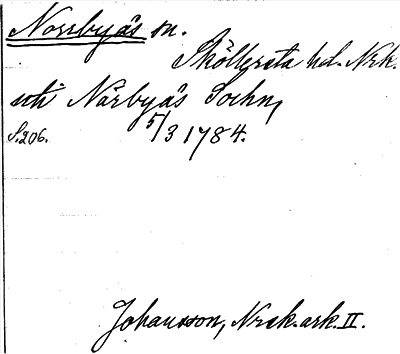 Norrbyås sn.
Sköllersta hd. Nrk.
uti Närbyås Sochn,
S. 206. 5/3 1784.
Johansson, Nrsk. ark. II.